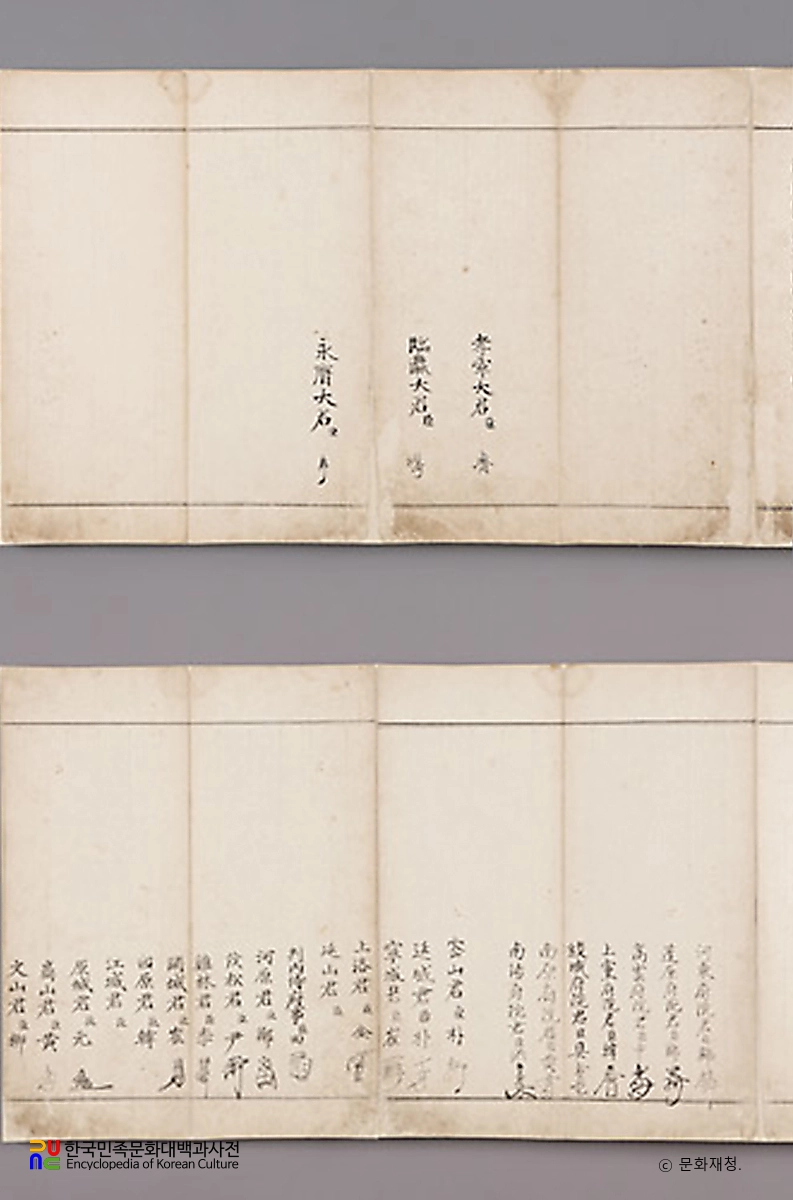 孝寧大君臣
臨瀛大君臣
永膺大君臣
河東府院君臣鄭
蓬原府院君臣鄭
高靈府院君臣申
上黨府院君臣韓
綾城府院君臣具
南原府院君臣黃
南陽府院君臣洪
密山君臣朴
延城君臣朴
寧城君臣崔
上洛君臣金
延山君臣
判內侍府事臣田
河原君臣鄭
茂松君臣尹
雞林君臣李
隋城君臣崔
西原君臣韓
江城君臣
原城君臣元
商山君臣黃
文山君臣柳
한국민족문화대백과사전
Encyclopedia of Korean Culture
© 문화재청.